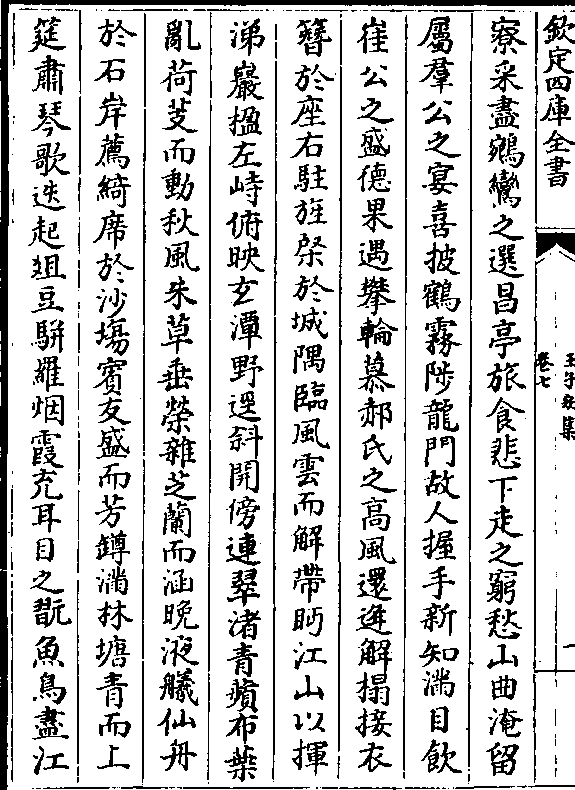 欽定四庫全書
王子安集
卷七
一
寮采盡鵷鸞之選昌亭旅食悲下走之窮愁山曲淹留
屬羣公之宴喜披鶴霧陟龍門故人握手新知滿目飲
崔公之盛德果遇攀輪慕郝氏之高風還逢解榻接衣
簪於座右駐旌棨於城隅臨風雲而解帶眄江山以揮
涕巖榲左峙俯映玄潭野逕斜開傍連翠渚青蘋布葉
亂荷芰而動秋風朱草垂榮雜芝蘭而涵晚液艤仙舟
於石岸薦綺席於沙塲賓友盛而芳罇滿林塘青而上
筵肅琴歌迭起俎豆駢羅烟霞充耳目之翫魚鳥盡江